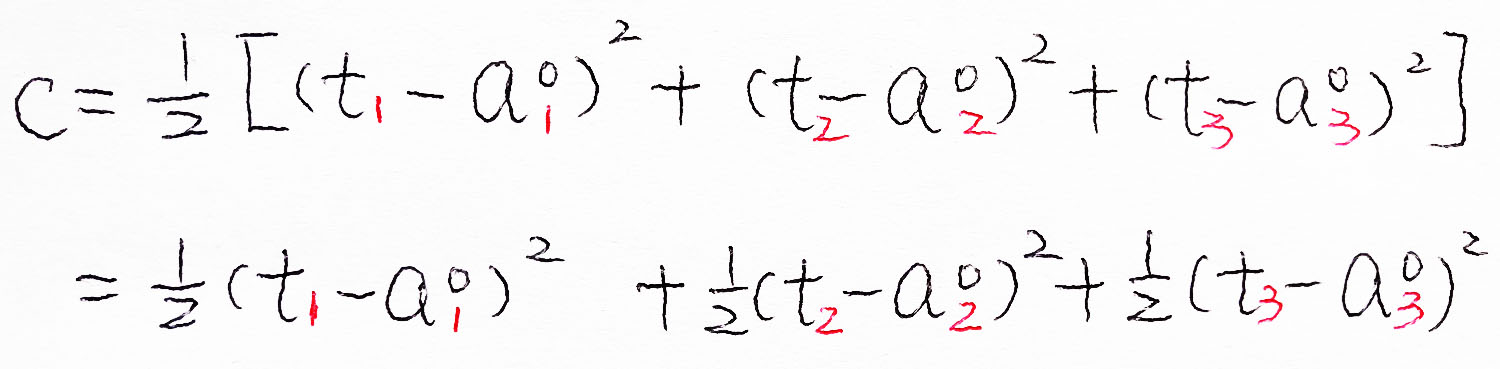 C = 1/2 [(t₁ - a₁⁰)² + (t₂ - a₂⁰)² + (t₃ - a₃⁰)²]
= 1/2 (t₁ - a₁⁰)² + 1/2 (t₂ - a₂⁰)² + 1/2 (t₃ - a₃⁰)²